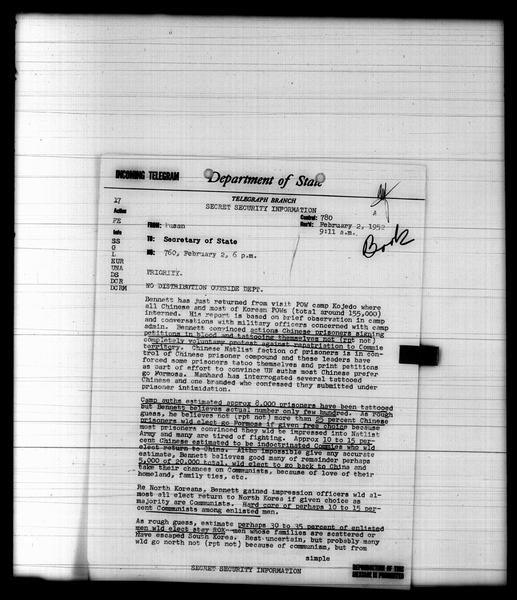 INCOMING TELEGRAM Department of State
TELEGRAPH BRANCH
SECRET SECURITY INFORMATION
17
Action
FE
Info
SS
G
L
EUR
UNA
DS
DCR
DCRM
Control: 780
Rec'd: February 2, 1952
9:11 a.m.
A
Book
FROM: Pusan
TO: Secretary of State
NO: 760, February 2, 6 p.m.
PRIORITY.
NO DISTRIBUTION OUTSIDE DEPT.
Bennett has just returned from visit POW camp Kojedo where
all Chinese and most of Korean POWs (total around 155,000)
interned. His report is based on brief observation in camp
and conversations with military officers concerned with camp
admin. Bennett convinced actions Chinese prisoners signing
petitions in blood and tattooing themselves not (rpt not)
completely voluntary protest against repatriation to Commie
territory. Chinese Natlist faction of prisoners is in con-
trol of Chinese prisoner compound and these leaders have
forced some prisoners tatoo themselves and print petitions
as part of effort to convince UN auths most Chinese prefer
go Formosa. Manhard has interrogated several tattooed
Chinese and one branded who confessed they submitted under
prisoner intimidation.
Camp auths estimated approx 8,000 prisoners have been tattooed
but Bennett believes actual number only few hundred. As rough
guess, he believes not (rpt not) more than 25 percent Chinese
prisoners wld elect go Formosa if given free choice because
most prisoners convinced they wld be impressed into Natlist
Army and many are tired of fighting. Approx 10 to 15 per-
cent Chinese estimated to be indoctrinated Commies who wld
elect return to China. Altho impossible give any accurate
estimate, Bennett believes good many of remainder perhaps
5,000 of 20,000 total, wld elect to go back to China and
take their chances on Communists, because of love of their
homeland, family ties, etc.
Re North Koreans, Bennett gained impression officers wld al-
most all elect return to North Korea if given choice as
majority are Communists. Hard core of perhaps 10 to 15 per-
cent Communists among enlisted men.
As rough guess, estimate perhaps 30 to 35 percent of enlisted
men wld elect stay ROK--men whose families are scattered or
have escaped South Korea. Rest uncertain, but probably many
wld go north not (rpt not) because of communism, but from
simple
SECRET SECURITY INFORMATION
REPRODUCTION OF THIS
MESSAGE IS PROHIBITED